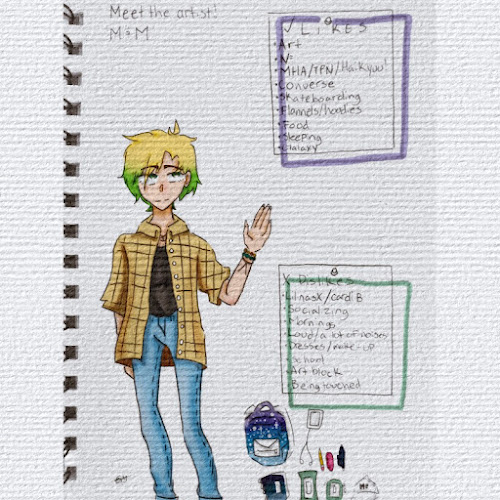 Meet the artist!
M&M
✓ LIKES
• Art
• MHA/TPN/Haikyuu!
• Converse
• Skateboarding
• Flannels/hoodies
• Food
• Sleeping
• Galaxy
X Dislikes
• Lil nasx/Cardi B
• Socializing
• Mornings
• Loud/a lot of noises
• Dresses/make-up
• School
• Art block
• Being touched